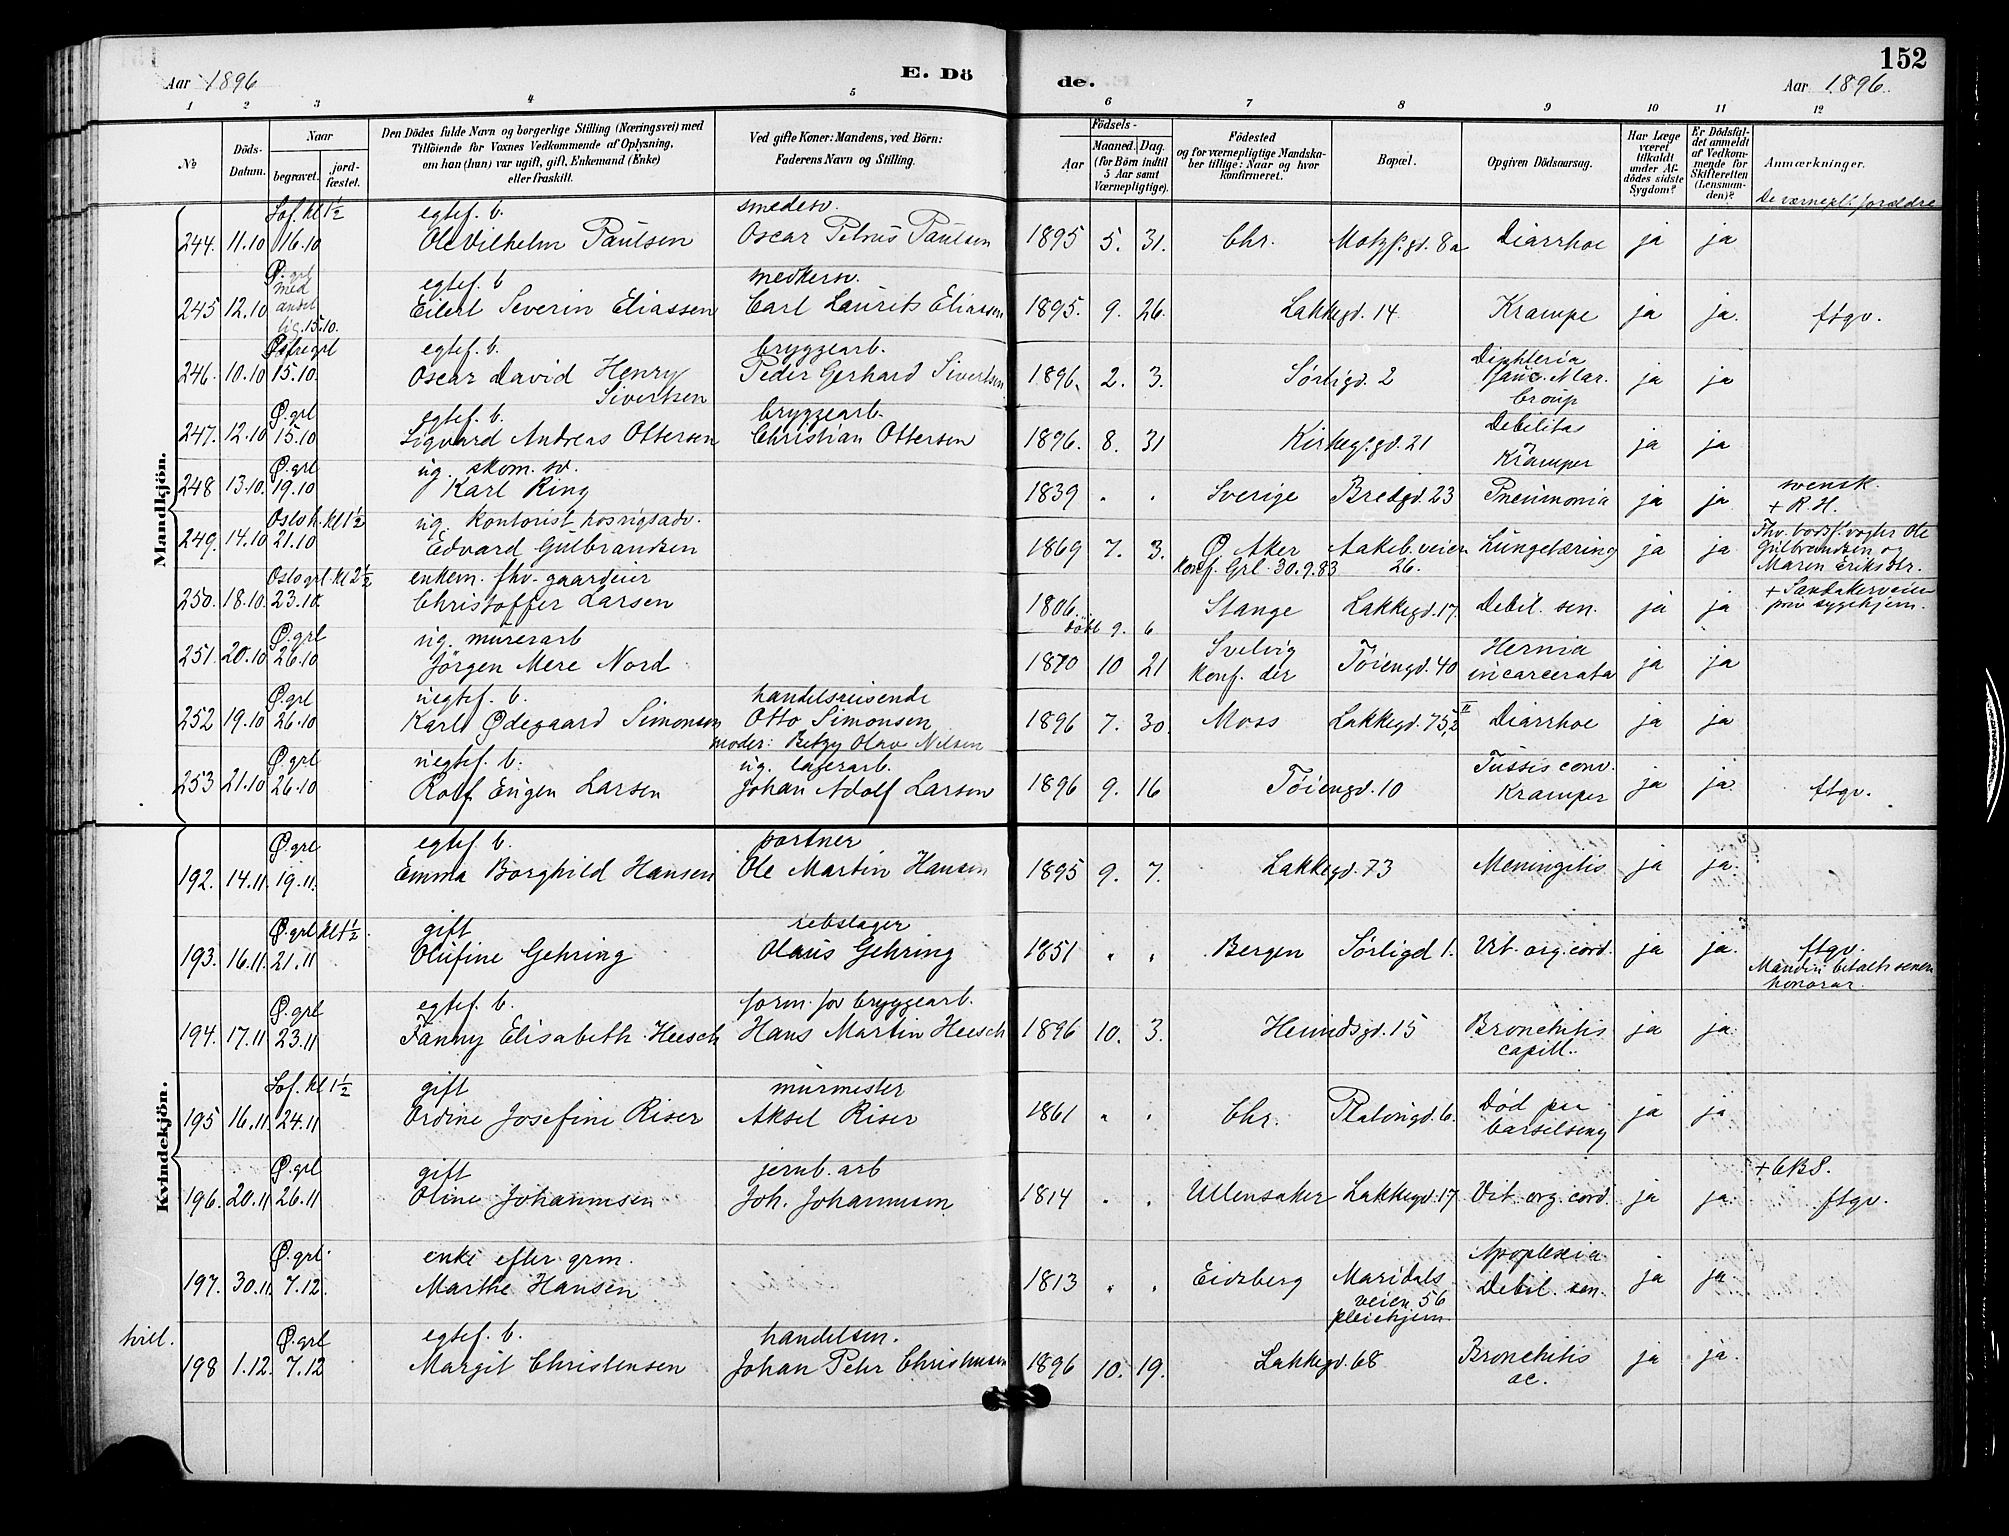 152
Aar 1896
E. Dö
de.
Aar 1896.
1 2 3 4 5 6 7 8 9 10 11 12
№
Döds-Datum.
Naar
begravet.
jord-fæstet.
Den Dödes fulde Navn og borgerlige Stilling (Næringsvei) med
Tilföiende for Voxnes Vedkommende af Oplysning,
om han (hun) var ugift, gift, Enkemand (Enke)
eller fraskilt.
Ved gifte Koner: Mandens, ved Börn:
Faderens Navn og Stilling.
Födsels-
Aar
Maaned. Dag.
(for Börn indtil
5 Aar samt
Værnepligtige).
Födested
og for værnepligtige Mandska-
ber tillige: Naar og hvor
konfirmeret.
Bopæl.
Opgiven Dödsaarsag.
Har Læge
været
tilkaldt
under Af-
dödes sidste
Sygdom?
Er Dödsfal-
det anmeldt
af Vedkom-
mende for
Skifteretten
(Lensman-
den)?
Anmærkninger.
De værnepl. forældre
Mandkjön.
Sof. kl 1½ egtef. b. smedesv.
244. 11.10 16.10 Ole Vilhelm Paulsen Oscar Petrus Paulsen 1895 5. 31. Chr. Motzf.gd. 8a Diarrhoe ja ja
Ø. grl med andet lig. egtef. b
245 12.10 15.10. Eilert Severin Eliassen Carl Laurits Eliassen 1895. 9. 26. Lakkegd. 14 Krampe ja ja. ftgv.
Østre grl egtef. b. bryggearb.
246. 10.10 15.10. Oscar David Henry Sivertsen Peder Gerhard Sivertsen 1896. 2. 3. Sørligd. 2 Diphteria Croup ja ja
Ø. grl egtef. b. bryggearb.
247. 12.10 15.10 Sigvard Andreas Ottersen Christian Ottersen 1896. 8. 31 Kirkeg.gd. 21 Debilitas Kramper ja ja
Ø. grl ug. skom. sv.
248 13.10. 19.10 Karl Ring 1839 " " Sverige Bredgd. 23 Pneumonia ja ja. svensk. + R. H.
Oslo h. kl 1½ ug. kontorist hos rigsadv.
249. 14.10 21.10 Edvard Gulbrandsen 1869 7. 3. Ø Aker konf. Grl. 30.9.83 Aakeb.veien 26. Lungetæring ja ja Fhv. bodsf. vogter Ole Gulbrandsen og Maren Eriksdtr.
Oslo grl kl 2½ enkem. fhv. gaardeier
250. 18.10. 23.10. Christoffer Larsen 1806. døbt 9. 6 Stange Lakkegd. 17. Debil. sen. ja ja + Sandakerveien priv sygehjem.
Ø. grl ug. murerarb
251. 20.10 26.10 Jørgen Mere Nord 1870 10 21 Svelvig konf. der Tøiengd. 40 Hernia incarcerata ja ja
Ø. grl uegtef. b. handelsreisende
252 19.10 26.10 Karl Ødegaard Simonsen Otto Simonsen 1896 7. 30. Moss Lakkegd. 75,2 II Diarrhoe ja ja
moder: Betzy Olava Nilsen
Ø. grl uegtef. b. ug. lagerarb.
253 21.10 26.10 Rolf Eugen Larsen Johan Adolf Larsen 1896 9. 16 Tøiengd. 10 Tussis conv. Kramper ja ja. ftgv.
Kvindekjön.
Ø. grl egtef. b. portner
192. 14.11. 19.11. Emma Borghild Hansen Ole Martin Hansen 1895 9. 7. Lakkegd. 73 Meningitis ja ja.
Ø. grl kl 1½ gift rebslager
193. 16.11. 21.11 Olufine Gehring Olaus Gehring 1851 " " Bergen Sørligd 1. Vit. org. cord. ja ja. ftgv. Manden betalt senere honorar.
Ø. grl egtef. b. form. for bryggearb.
194. 17.11 23.11 Fanny Elisabeth Heesch Hans Martin Heesch 1896 10. 3. Heimdsgd. 15 Bronchitis capill. ja ja
Sof. kl 1½ gift murmester
195 16.11. 24.11 Ordine Josefine Riser Aksel Riser 1861 " " Chr. Platougd. 6. Død paa barselseng ja ja
Ø. grl gift jernb. arb
196. 20.11 26.11 Oline Johannesen Joh. Johannesen 1814 " " Ullensaker Lakkegd. 17 Vit. org. cord. ja ja. + CBS. ftgv.
Ø. grl. enke efter grm.
197. 30.11. 7.12. Marthe Hansen 1813 " " Eidsberg Maridals veien 56 pleiehjem Apoplexia Debil. sen. ja ja
tvill. Ø. grl egtef. b. handelsm.
198 1.12. 7.12 Margit Christensen Johan Peter Christensen 1896 10. 19. Lakkegd. 68 Bronchitis ac. ja ja.